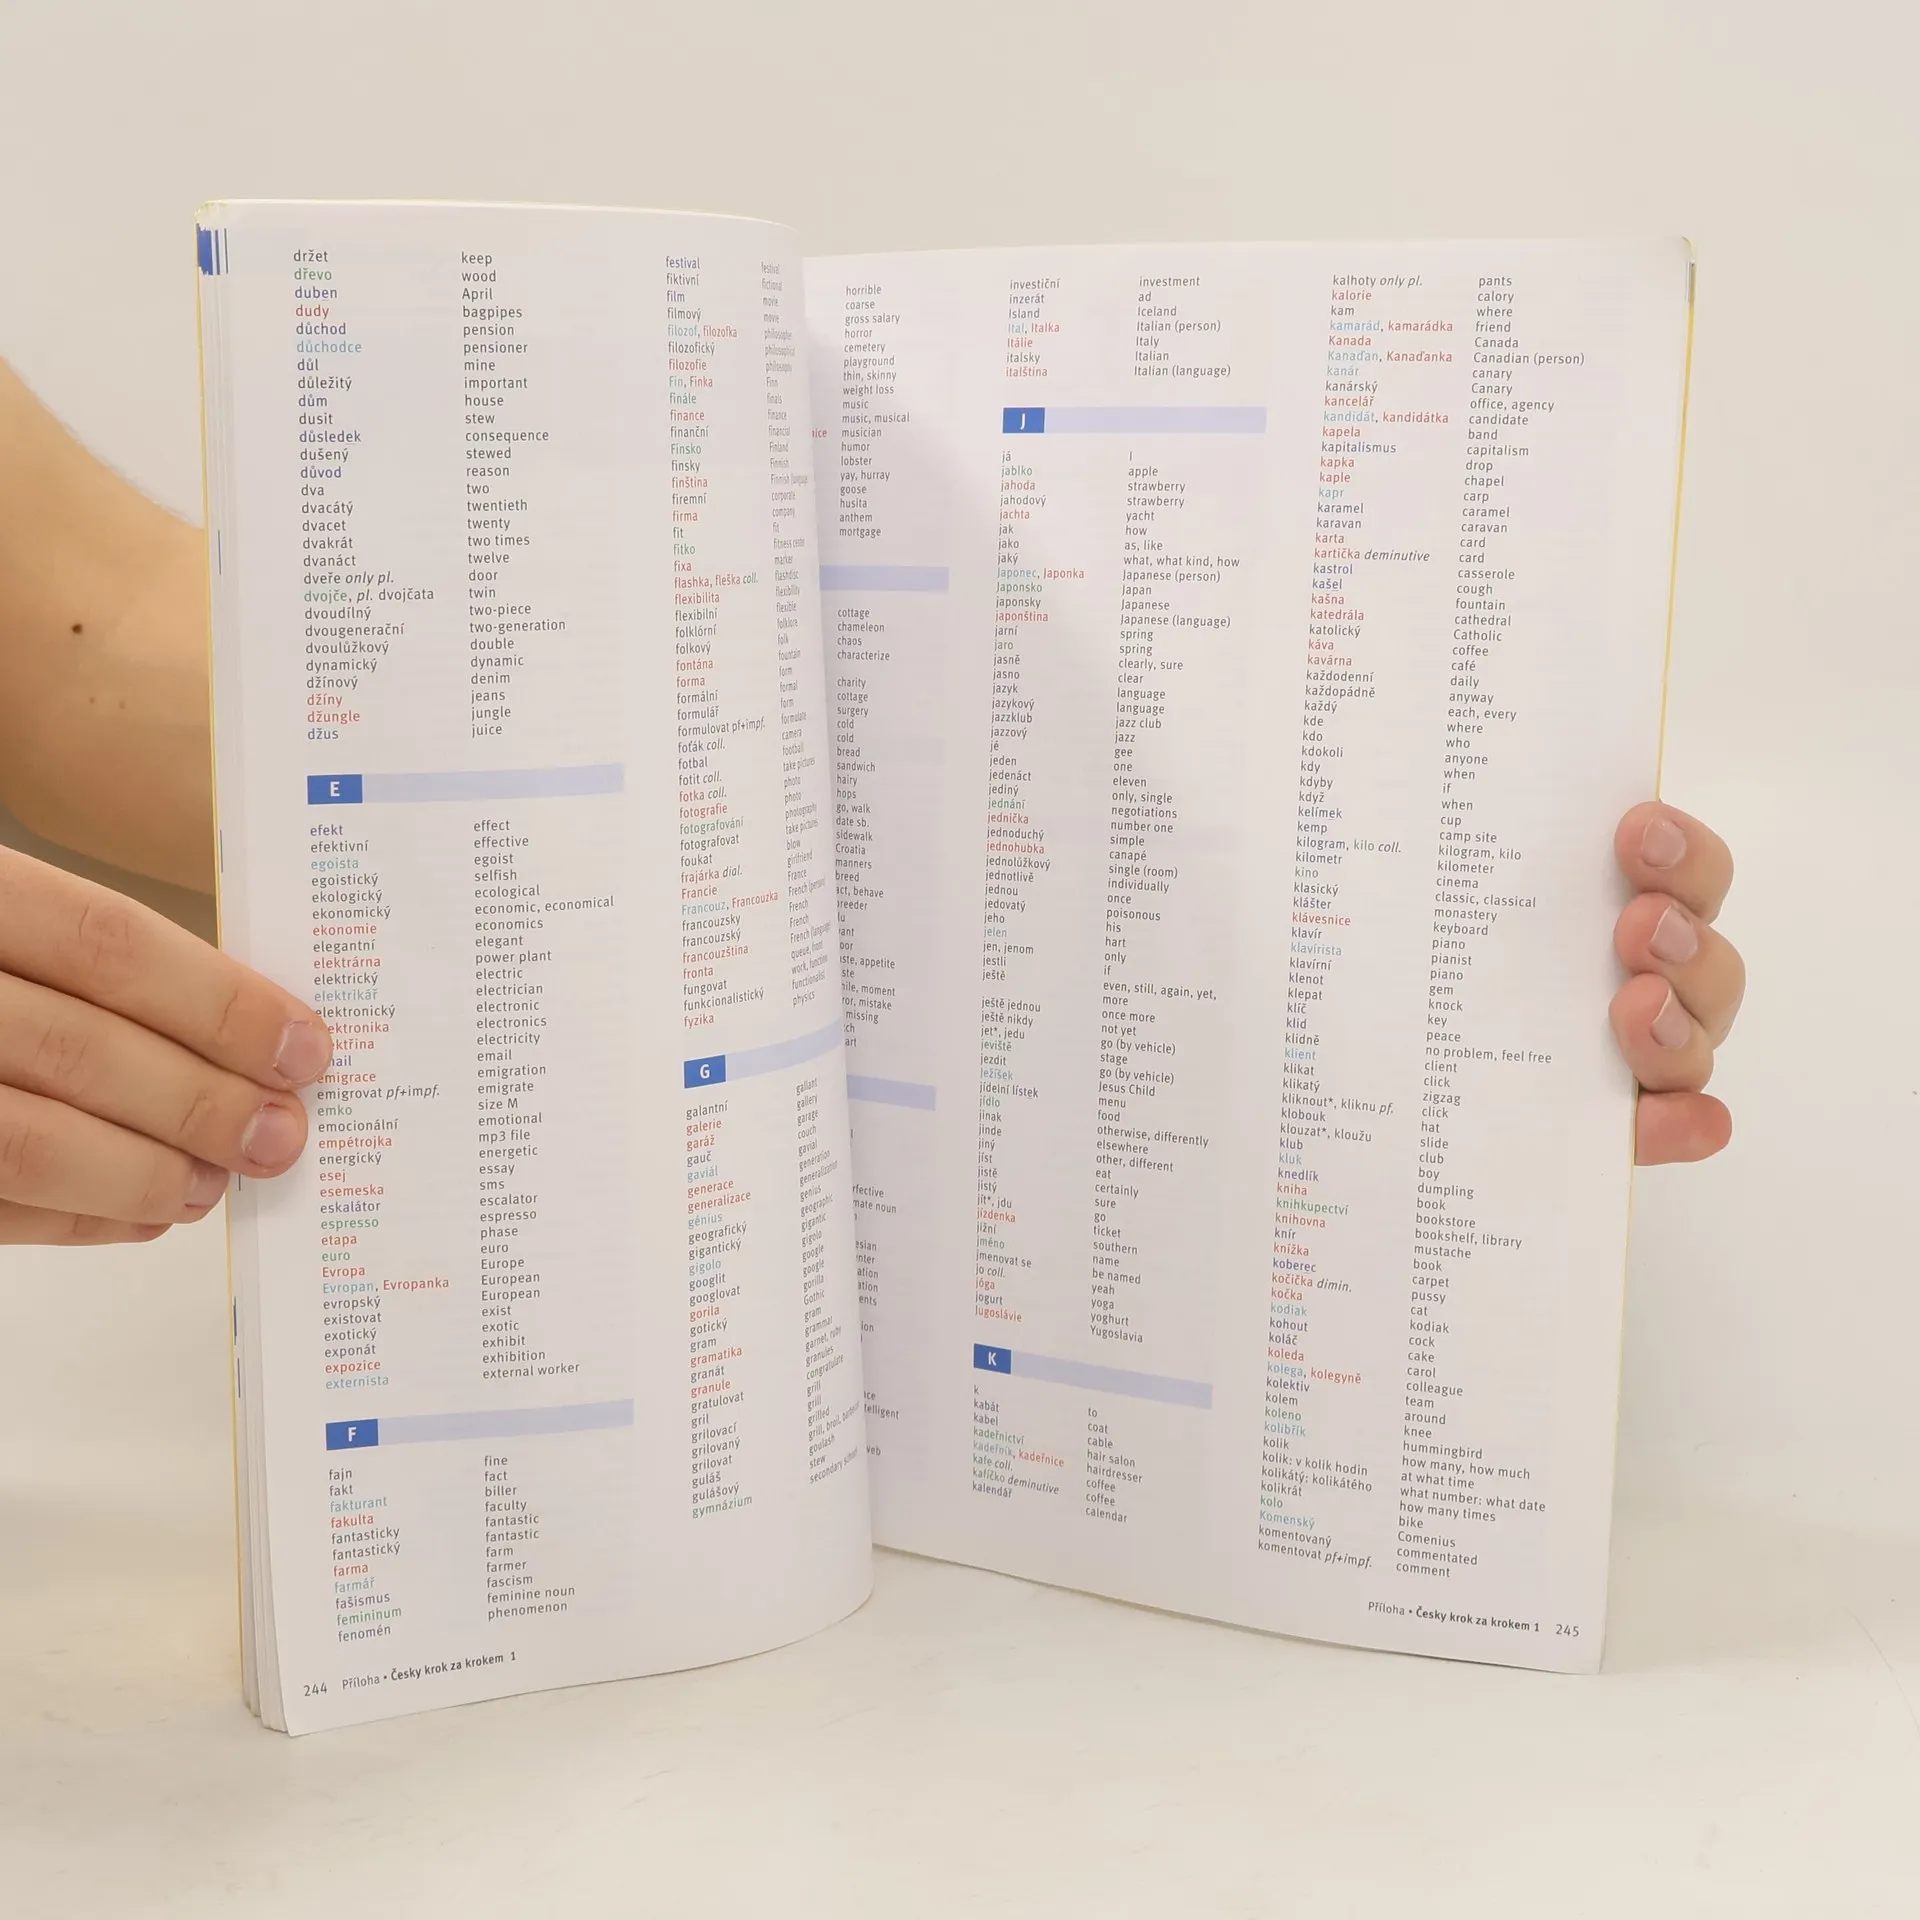 držet keep
dřevo wood
duben April
dudy bagpipes
důchod pension
důchodce pensioner
důl mine
důležitý important
dům house
dusit stew
důsledek consequence
dušený stewed
důvod reason
dva two
dvacátý twentieth
dvacet twenty
dvakrát two times
dvanáct twelve
dveře only pl. door
dvojče, pl. dvojčata twin
dvoudílný two-piece
dvougenerační two-generation
dvoulůžkový double
dynamický dynamic
džínový denim
džíny jeans
džungle jungle
džus juice
E
efekt effect
efektivní effective
egoista egoist
egoistický selfish
ekologický ecological
ekonomický economic, economical
ekonomie economics
elegantní elegant
elektrárna power plant
elektrický electric
elektrikář electrician
elektronický electronic
ektronika electronics
ektřina electricity
mail email
emigrace emigration
emigrovat pf+impf. emigrate
emko size M
emocionální emotional
empétrojka mp3 file
energický energetic
esej essay
esemeska sms
eskalátor escalator
espresso espresso
etapa phase
euro euro
Evropa Europe
Evropan, Evropanka European
evropský European
existovat exist
exotický exotic
exponát exhibit
expozice exhibition
externista external worker
F
fajn fine
fakt fact
fakturant biller
fakulta faculty
fantasticky fantastic
fantastický fantastic
farma farm
farmář farmer
fašismus fascism
femininum feminine noun
fenomén phenomenon
festival festival
fiktivní fictional
film movie
filmový movie
filozof, filozofka philosopher
filozofický philosophical
filozofie philosophy
Fin, Finka Finn
finále finals
finance finance
finanční financial
Finsko Finland
finsky Finnish
finština Finnish (language)
firemní corporate
firma company
fit fit
fitko fitness center
fixa marker
flashka, fleška coll. flashdisc
flexibilita flexibility
flexibilní flexible
folklórní folklore
folkový folk
fontána fountain
forma form
formální formal
formulář form
formulovat pf+impf. formulate
foťák coll. camera
fotbal football
fotit coll. take pictures
fotka coll. photo
fotografie photo
fotografování photography
fotografovat take pictures
foukat blow
frajárka dial. girlfriend
Francie France
Francouz, Francouzka French (person)
francouzsky French
francouzský French
francouzština French (language)
fronta queue, front
fungovat work, function
funkcionalistický functionalist
fyzika physics
G
galantní gallant
galerie gallery
garáž garage
gauč couch
gaviál gavial
generace generation
generalizace generalization
génius genius
geografický geographic
gigantický gigantic
gigolo gigolo
googlit google
googlovat google
gorila gorilla
gotický Gothic
gram gram
gramatika grammar
granát garnet, ruby
granule granules
gratulovat congratulate
gril grill
grilovací grill
grilovaný grilled
grilovat grill, broil, barbecue
guláš goulash
gulášový stew
gymnázium secondary school
244 Příloha • Česky krok za krokem 1
horrible
coarse
gross salary
horror
cemetery
playground
thin, skinny
weight loss
music
music, musical
nice musician
humor
lobster
yay, hurray
goose
husita
anthem
mortgage
cottage
chameleon
chaos
characterize
charity
cottage
surgery
cold
cold
bread
sandwich
hairy
hops
go, walk
date sb.
sidewalk
Croatia
manners
breed
act, behave
breeder
investiční investment
inzerát ad
Island Iceland
Ital, Italka Italian (person)
Itálie Italy
italsky Italian
italština Italian (language)
J
já I
jablko apple
jahoda strawberry
jahodový strawberry
jachta yacht
jak how
jako as, like
jaký what, what kind, how
Japonec, Japonka Japanese (person)
Japonsko Japan
japonsky Japanese
japonština Japanese (language)
jarní spring
jaro spring
jasně clearly, sure
jasno clear
jazyk language
jazykový language
jazzklub jazz club
jazzový jazz
jé gee
jeden one
jedenáct eleven
jediný only, single
jednání negotiations
jednička number one
jednoduchý simple
jednohubka canapé
jednolůžkový single (room)
jednotlivě individually
jednou once
jedovatý poisonous
jeho his
jelen hart
jen, jenom only
jestli if
ještě even, still, again, yet,
more
ještě jednou once more
ještě nikdy not yet
jet*, jedu go (by vehicle)
jeviště stage
jezdit go (by vehicle)
Ježíšek Jesus Child
jídelní lístek menu
jídlo food
jinak otherwise, differently
jinde elsewhere
jiný other, different
jíst eat
jistě certainly
jistý sure
jít*, jdu go
jízdenka ticket
jižní southern
jméno name
jmenovat se be named
jo coll. yeah
jóga yoga
jogurt yoghurt
Jugoslávie Yugoslavia
K
k to
kabát coat
kabel cable
kadeřnictví hair salon
kadeřník, kadeřnice hairdresser
kafe coll. coffee
kafíčko deminutive coffee
kalendář calendar
kalhoty only pl. pants
kalorie calory
kam where
kamarád, kamarádka friend
Kanada Canada
Kanaďan, Kanaďanka Canadian (person)
kanár canary
kanárský Canary
kancelář office, agency
kandidát, kandidátka candidate
kapela band
kapitalismus capitalism
kapka drop
kaple chapel
kapr carp
karamel caramel
karavan caravan
karta card
kartička deminutive card
kastrol casserole
kašel cough
kašna fountain
katedrála cathedral
katolický Catholic
káva coffee
kavárna café
každodenní daily
každopádně anyway
každý each, every
kde where
kdo who
kdokoli anyone
kdy when
kdyby if
když when
kelímek cup
kemp camp site
kilogram, kilo coll. kilogram, kilo
kilometr kilometer
kino cinema
klasický classic, classical
klášter monastery
klávesnice keyboard
klavír piano
klavírista pianist
klavírní piano
klenot gem
klepat knock
klíč key
klid peace
klidně no problem, feel free
klient client
klikat click
klikatý zigzag
kliknout*, kliknu pf. click
klobouk hat
klouzat*, kloužu slide
klub club
kluk boy
knedlík dumpling
kniha book
knihkupectví bookstore
knihovna bookshelf, library
knír mustache
knížka book
koberec carpet
kočička dimin. pussy
kočka cat
kodiak kodiak
kohout cock
koláč cake
koleda carol
kolega, kolegyně colleague
kolektiv team
kolem around
koleno knee
kolibřík hummingbird
kolik how many, how much
kolik: v kolik hodin at what time
kolikátý: kolikátého what number: what date
kolikrát how many times
kolo bike
Komenský Comenius
komentovaný commentated
komentovat pf+impf. comment
Příloha • Česky krok za krokem 1 245